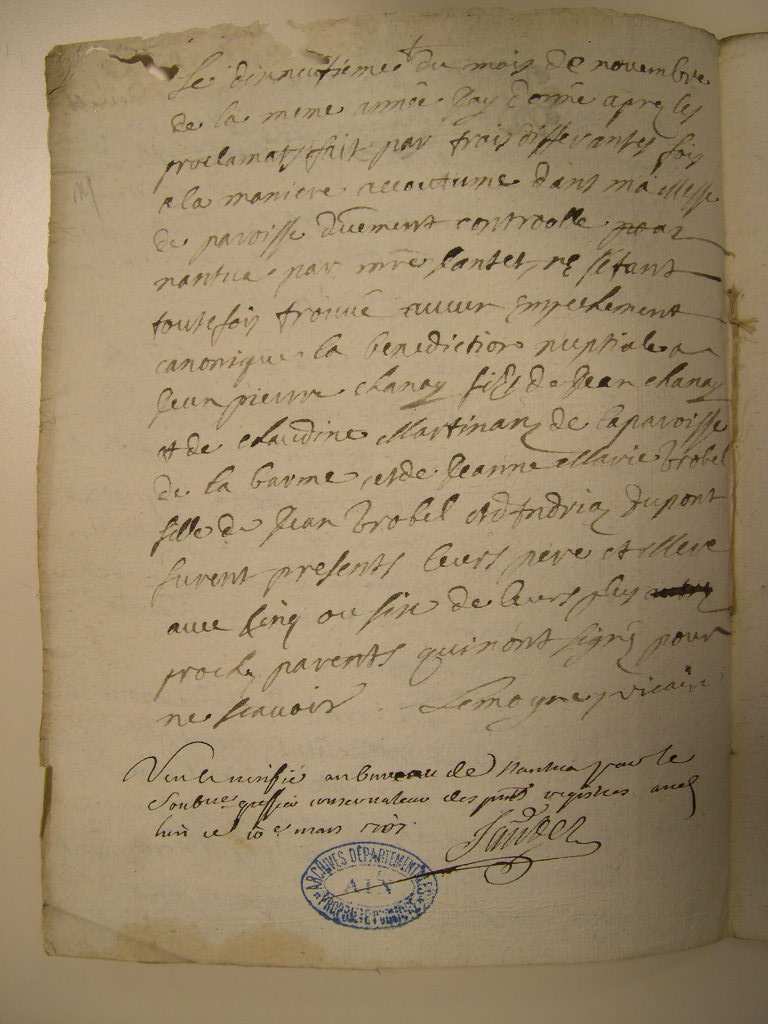 Le dixneufieme du mois de novembre
de la meme année Jay donné apres les
proclamats fait par trois differantes fois
a la maniere accoutume dans ma Messe
de paroisse duement controlle pour
nantua par mre Jantet, ne setant
toutefois trouvé aucun empechement
canonique la benediction nuptiale a
Jean pierre chanay fils de Jean chanay
et de claudine Martinand de la paroisse
de la barme, et de Jeanne Marie Brobel
fille de Jean Brobel et dandria dupont
furent presents leurs pere et Mere
avec cinq ou six de leurs plus
proche parents qui nont signé pour
ne scavoir. Lemoyne vicaire
Veu et verifié au bureau de Nantua par le
greffier conservateur des pnts registres
ce 10e mars 1701
Jantet
ARCHIVES DÉPARTEMENTALES
AIN
PROPRIÉTÉ PUBLIQUE